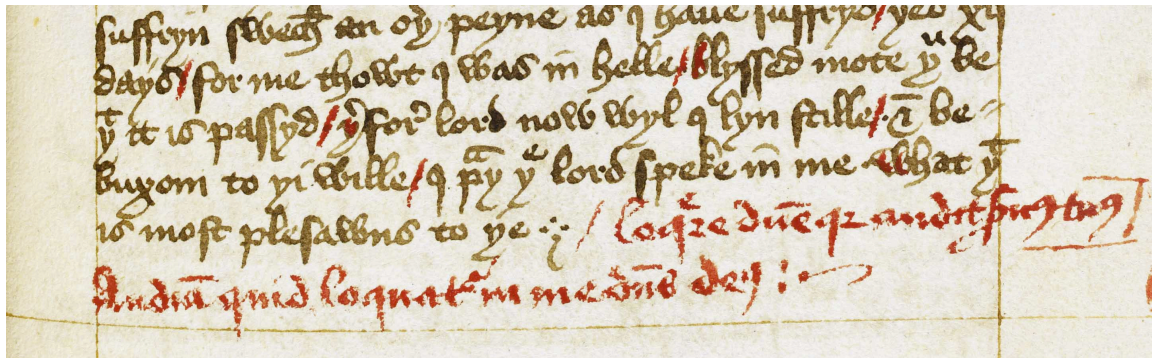 suffryn swech an oyͬ peyne as I haue suffryd/ yes xij
days/ for me thowt I was in helle/ blyssed mote yͧ be
yͭ it is passyd/ yͬforͬ lord now wyl I lyn stille/ & be-
buxom to yi wille/ I pͣy yͤ lord speke in me what yͭ
is most plesawns to ye / loqͬre dn̄e qr audit ſ̉uꝰ tuꝰ
Audiā quid loquatͬ in me dn̄s deꝰ